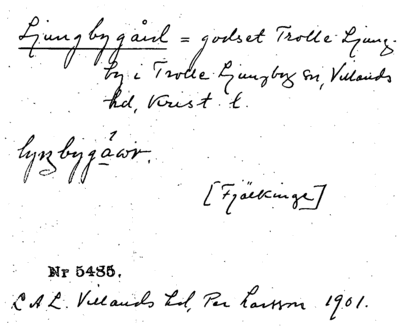 Ljungbygård = godset Trolle Ljung-
by i Trolle Ljungby sn, Villands
hd, Krist. l.
[Fjälkinge]
Nr 5485.
L A L. Villands hd, Per Larsson 1901.